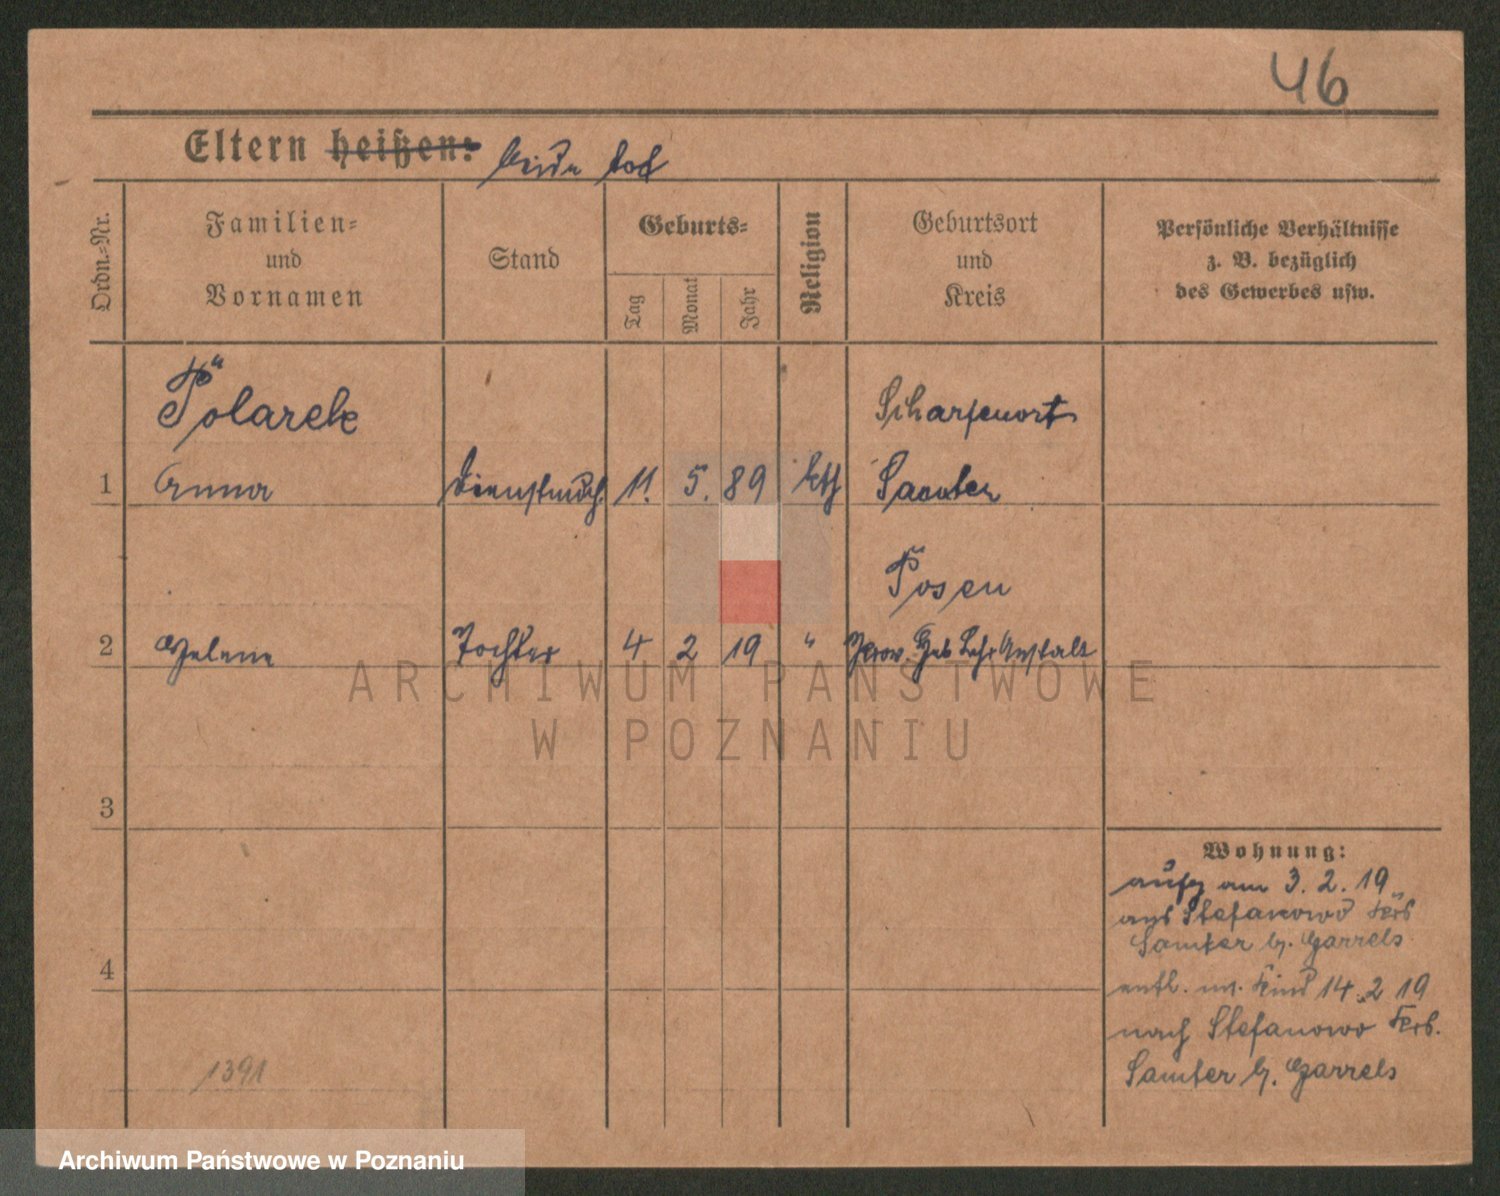 46
Eltern heißen: beide tot
Ordn.-Nr.
Familien-
und
Vornamen
Stand
Geburts-
Tag
Monat
Jahr
Religion
Geburtsort
und
Kreis
Persönliche Verhältnisse
z. B. bezüglich
des Gewerbes usw.
Polarek
Scharfenort
1 Anna Dienstmdch. 11. 5. 89 kth Samter
Posen
2 Helene Tochter 4 2 19 " Prov. Heb Lehr Anstalt
3
4
Wohnung:
aufg am 3. 2. 19
aus Stefanowo Krs
Samter b. Garrels
entl. m. Kind 14. 2 19
nach Stefanowo Krs.
Samter b. Garrels
1391
ARCHIWUM PAŃSTWOWE
W POZNANIU
Archiwum Państwowe w Poznaniu